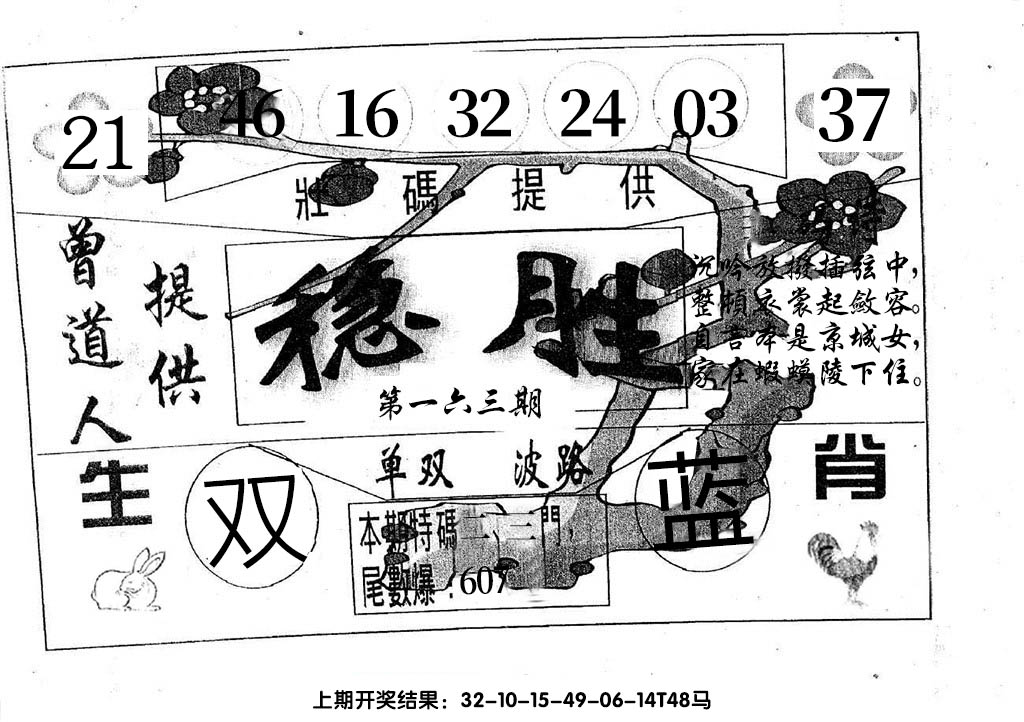 21 46 16 32 24 03 37
壯碼提供
曾道人
提供
稳胜
第一六三期
沉吟放撥插弦中，
整頓衣裳起斂容。
自言本是京城女，
家在蝦蟆陵下住。
单双 波路
生肖
双
蓝
本期特碼二、三門，
尾數爆：607
上期开奖结果：32-10-15-49-06-14T48马